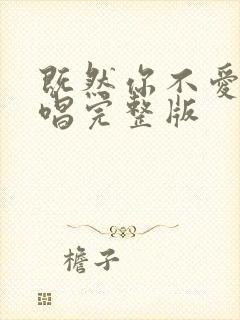 既然你不爱
唱完整版
檐子